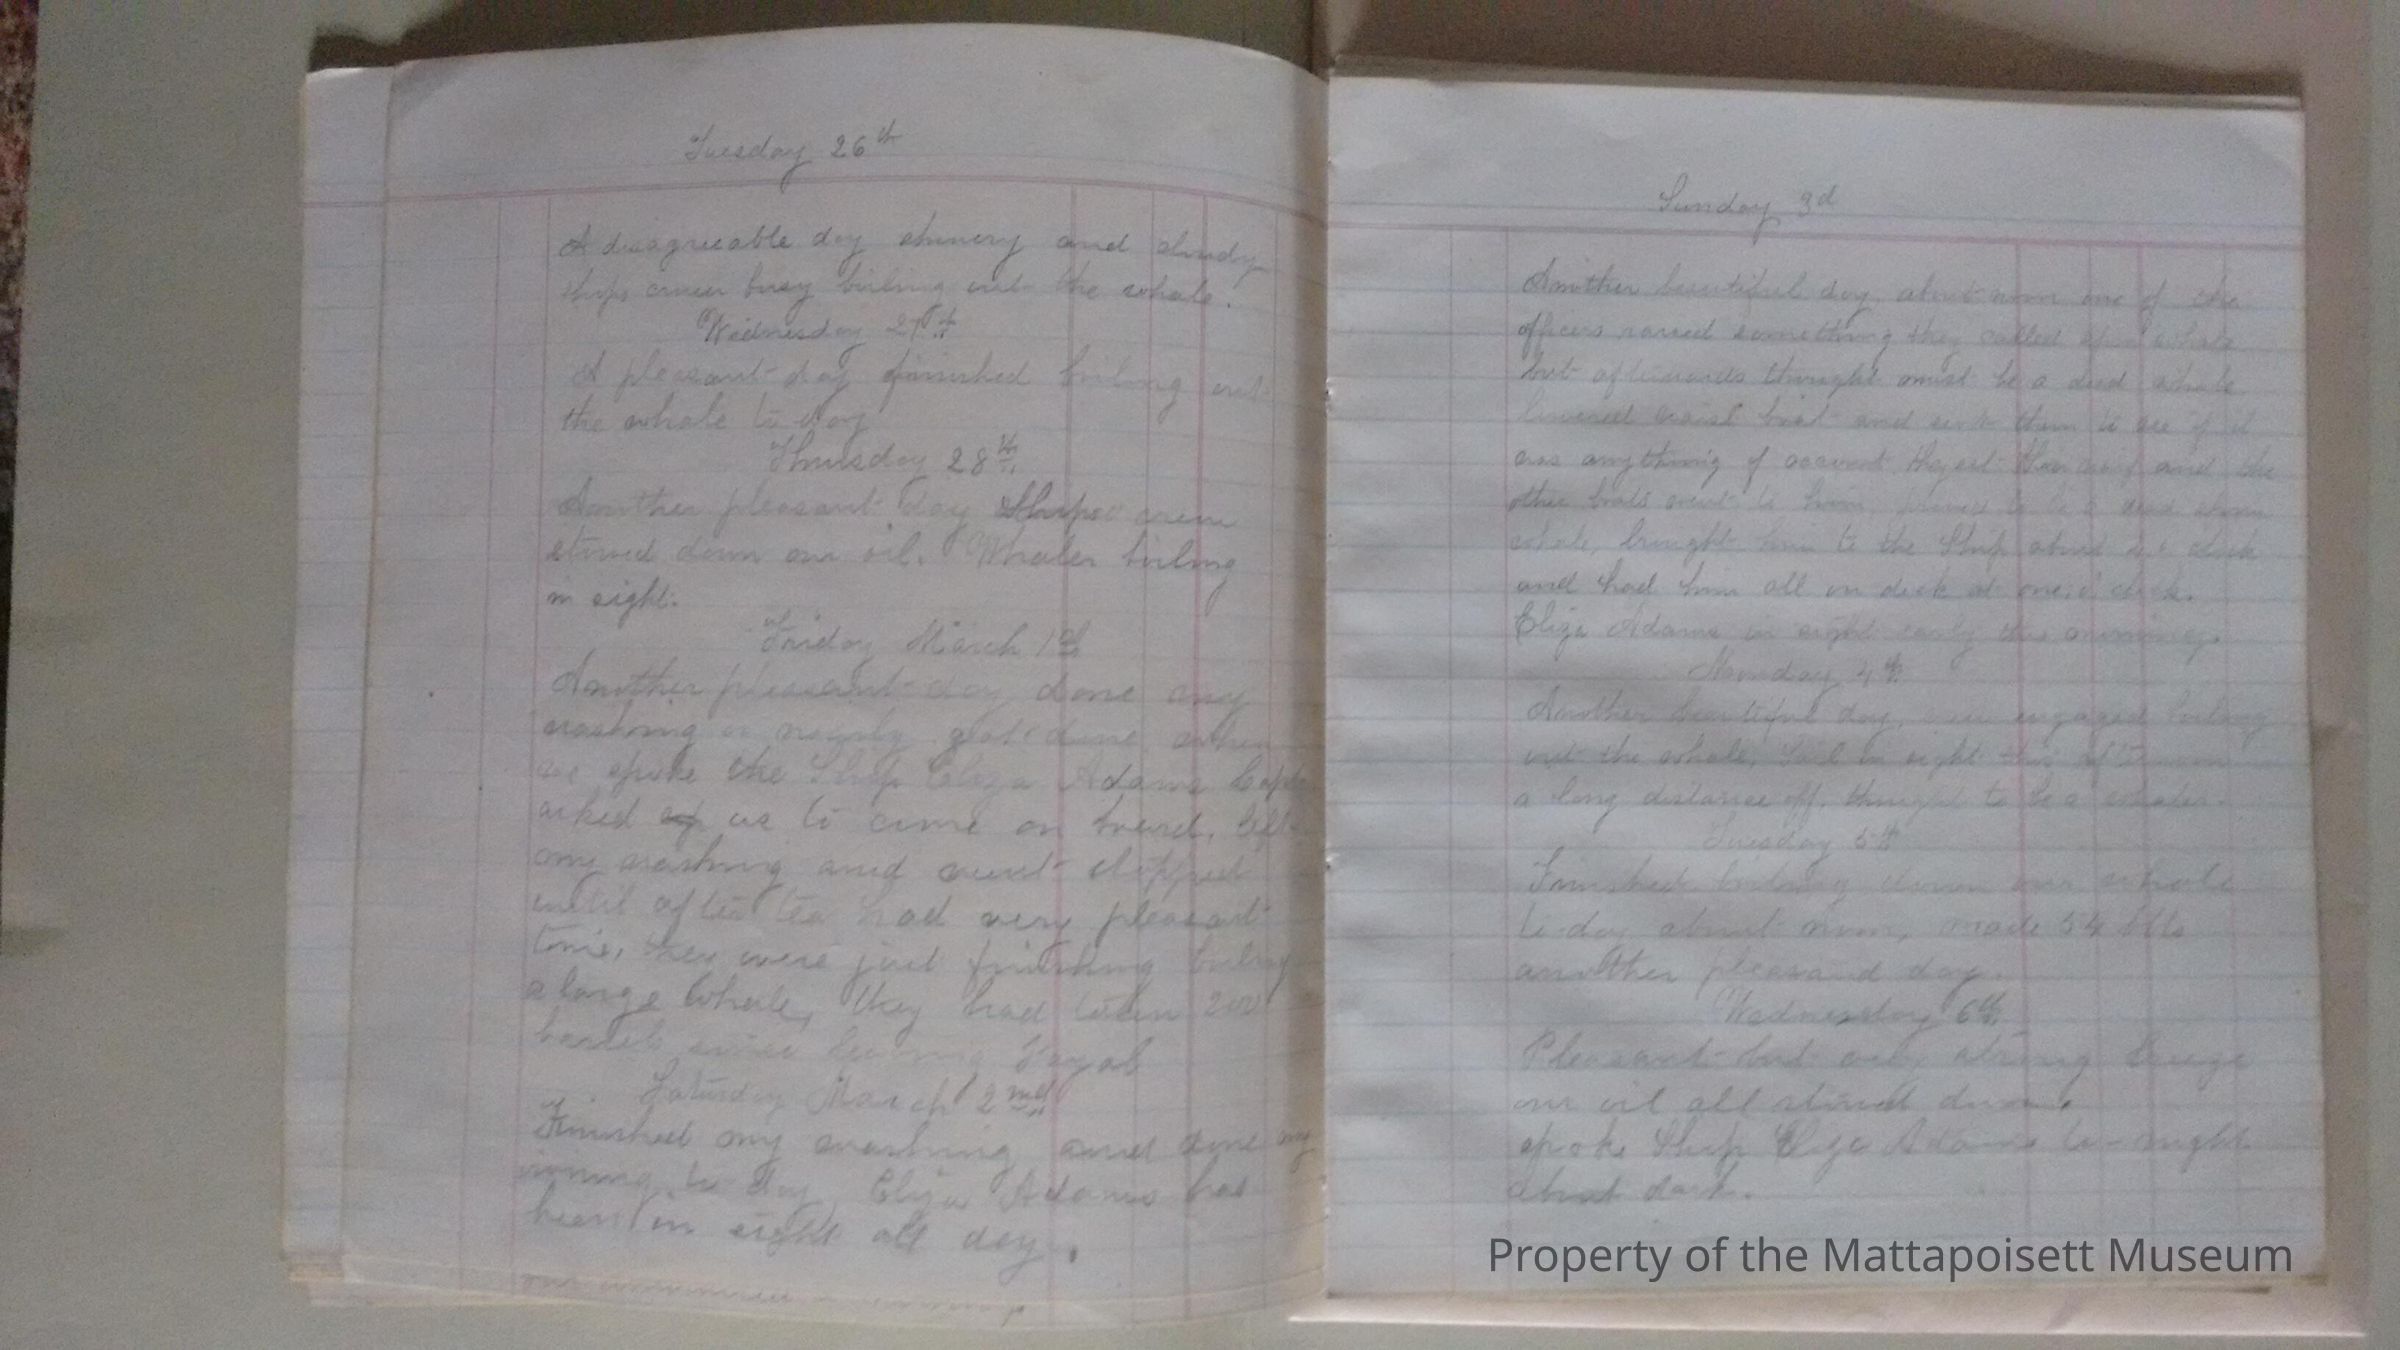 Tuesday 26th
A disagreeable day showery and cloudy
ships crew busy boiling out the whale.
Wednesday 27th
A pleasant day finished boiling out
the whale to day
Thursday 28th
Another pleasant day Ships crew
stowed down our oil. Whaler boiling
in sight.
Friday March 1st
Another pleasant day done my
washing or nearly got done when
we spoke the Ship Eliza Adams Capt
asked us to come on board, left
my washing and went stopped
until after tea had very pleasant
time, they were just finishing boiling
a large whale, they had taken 200
barrels since leaving Fayal
Saturday March 2nd
Finished my washing and done my
ironing to day Eliza Adams has
been in sight all day.
Sunday 3d
Another beautiful day, about noon one of the
officers raised something they called whale
but afterwards thought must be a dead whale
lowered waist boat and sent them to see if it
was anything of account they set and the
other boats went to him, proved to be a dead
whale, brought him to the Ship about o'clock
and had him all on deck at one o'clock.
Eliza Adams in sight early this morning.
Monday 4th
Another beautiful day, crew engaged boiling
out the whale, Sail in sight this afternoon
a long distance off, thought to be a whaler.
Tuesday 5th
Finished boiling down our whale
to-day about noon, made 54 bbls
another pleasant day.
Wednesday 6th
Pleasant but very strong breeze
our oil all stowed down.
spoke Ship Eliza Adams to-night
about dark.
Property of the Mattapoisett Museum